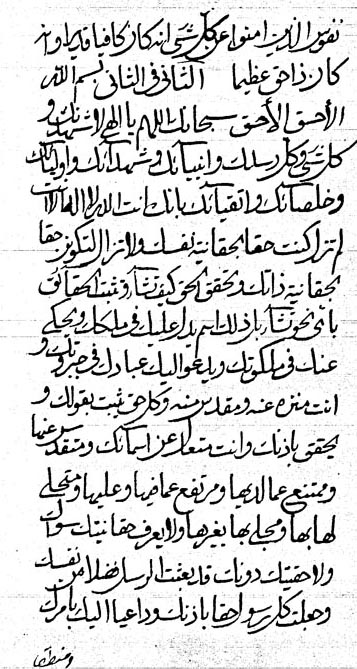 نفوس الذين امنوا عن كل شيء انه كان كافيا قديرا وانه
كان ذا حق عظيما الثاني في الثاني بسم الله
الأحق الأحق سبحانك اللهم يا الهي لاشهدنك و
كل شيء وكل رسلك وانبيائك وشهدائك واوليائك
وخلصائك واتقيائك بانك انت الله لا اله الا انت
لم تزل كنت حقا بحقانية نفسك ولا تزال لتكونن حقا
بحقانية ذاتك وتحقق الحق كيف تشاء وتثبت الحقائق
باي نحو تشاء باذنك اسم يدل عليك في ملكك ويحكي
عنك في ملكوتك ويدعو اليك عبادك في جبروتك و
انت منزه عنه ومقدس منه وكل حق يثبت بقولك و
يحقق باذنك وانت متعال عن اسمائك ومتقدس عنها
وممتنع عما لديها ومرتفع عما فيها وعليها ومتجلي
لها بها ومجليها بغيرها ولا يعرف حقانيتك سواك
ولا حقيتك دونك قد بعثت الرسل فضلا من نفسك
وجعلت كل رسول حقا باذنك وداعيا اليك بامرك